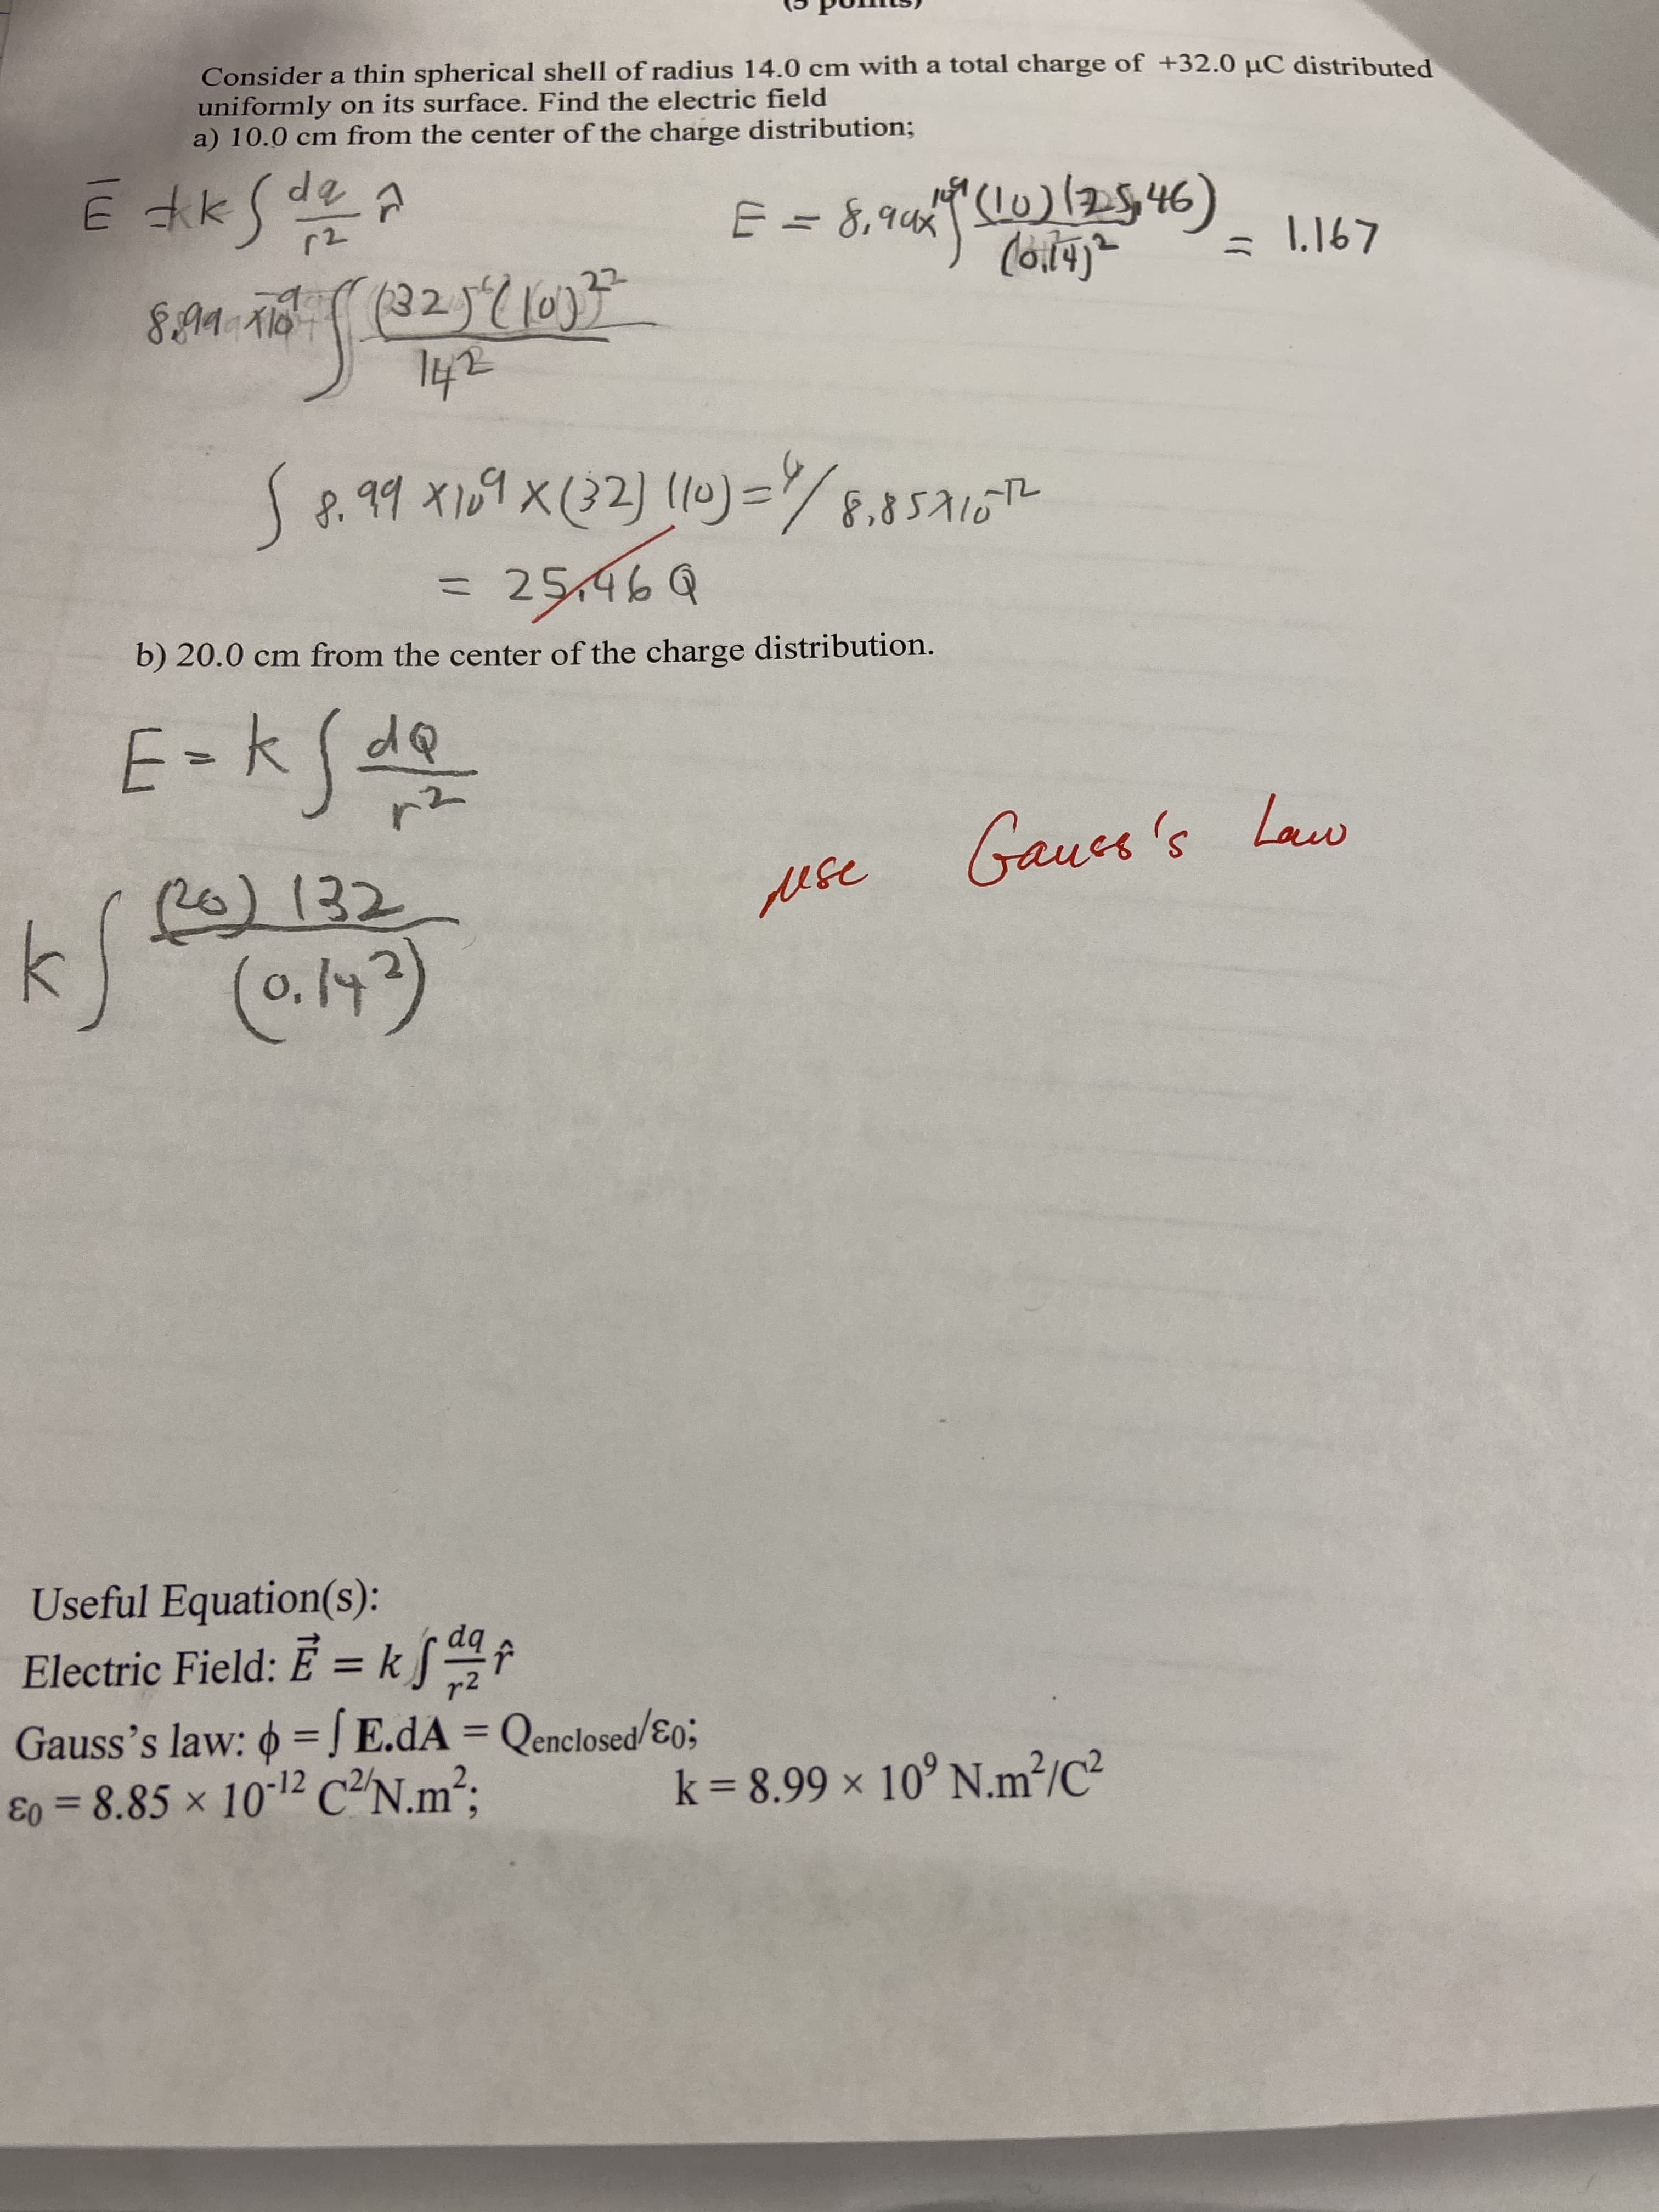 (5 points)
Consider a thin spherical shell of radius 14.0 cm with a total charge of +32.0 μC distributed
uniformly on its surface. Find the electric field
a) 10.0 cm from the center of the charge distribution;
E = k ∫ dq/r² r̂
E = 8.99x10⁹ ∫ (10)(25.46)/(0.14)² = 1.167
8.99 x10⁹ ∫ (32)(10)/14²
∫ 8.99 x10⁹ x (32) (10) = / 8.85x10⁻¹²
= 25.46 Q
b) 20.0 cm from the center of the charge distribution.
E = k ∫ dQ/r²
use Gauss's Law
k ∫ (20) 132/(0.14²)
Useful Equation(s):
Electric Field: E⃗ = k ∫ dq/r² r̂
Gauss's law: ϕ = ∫ E.dA = Qenclosed/ε0;
ε0 = 8.85 × 10⁻¹² C²/N.m²; k = 8.99 × 10⁹ N.m²/C²